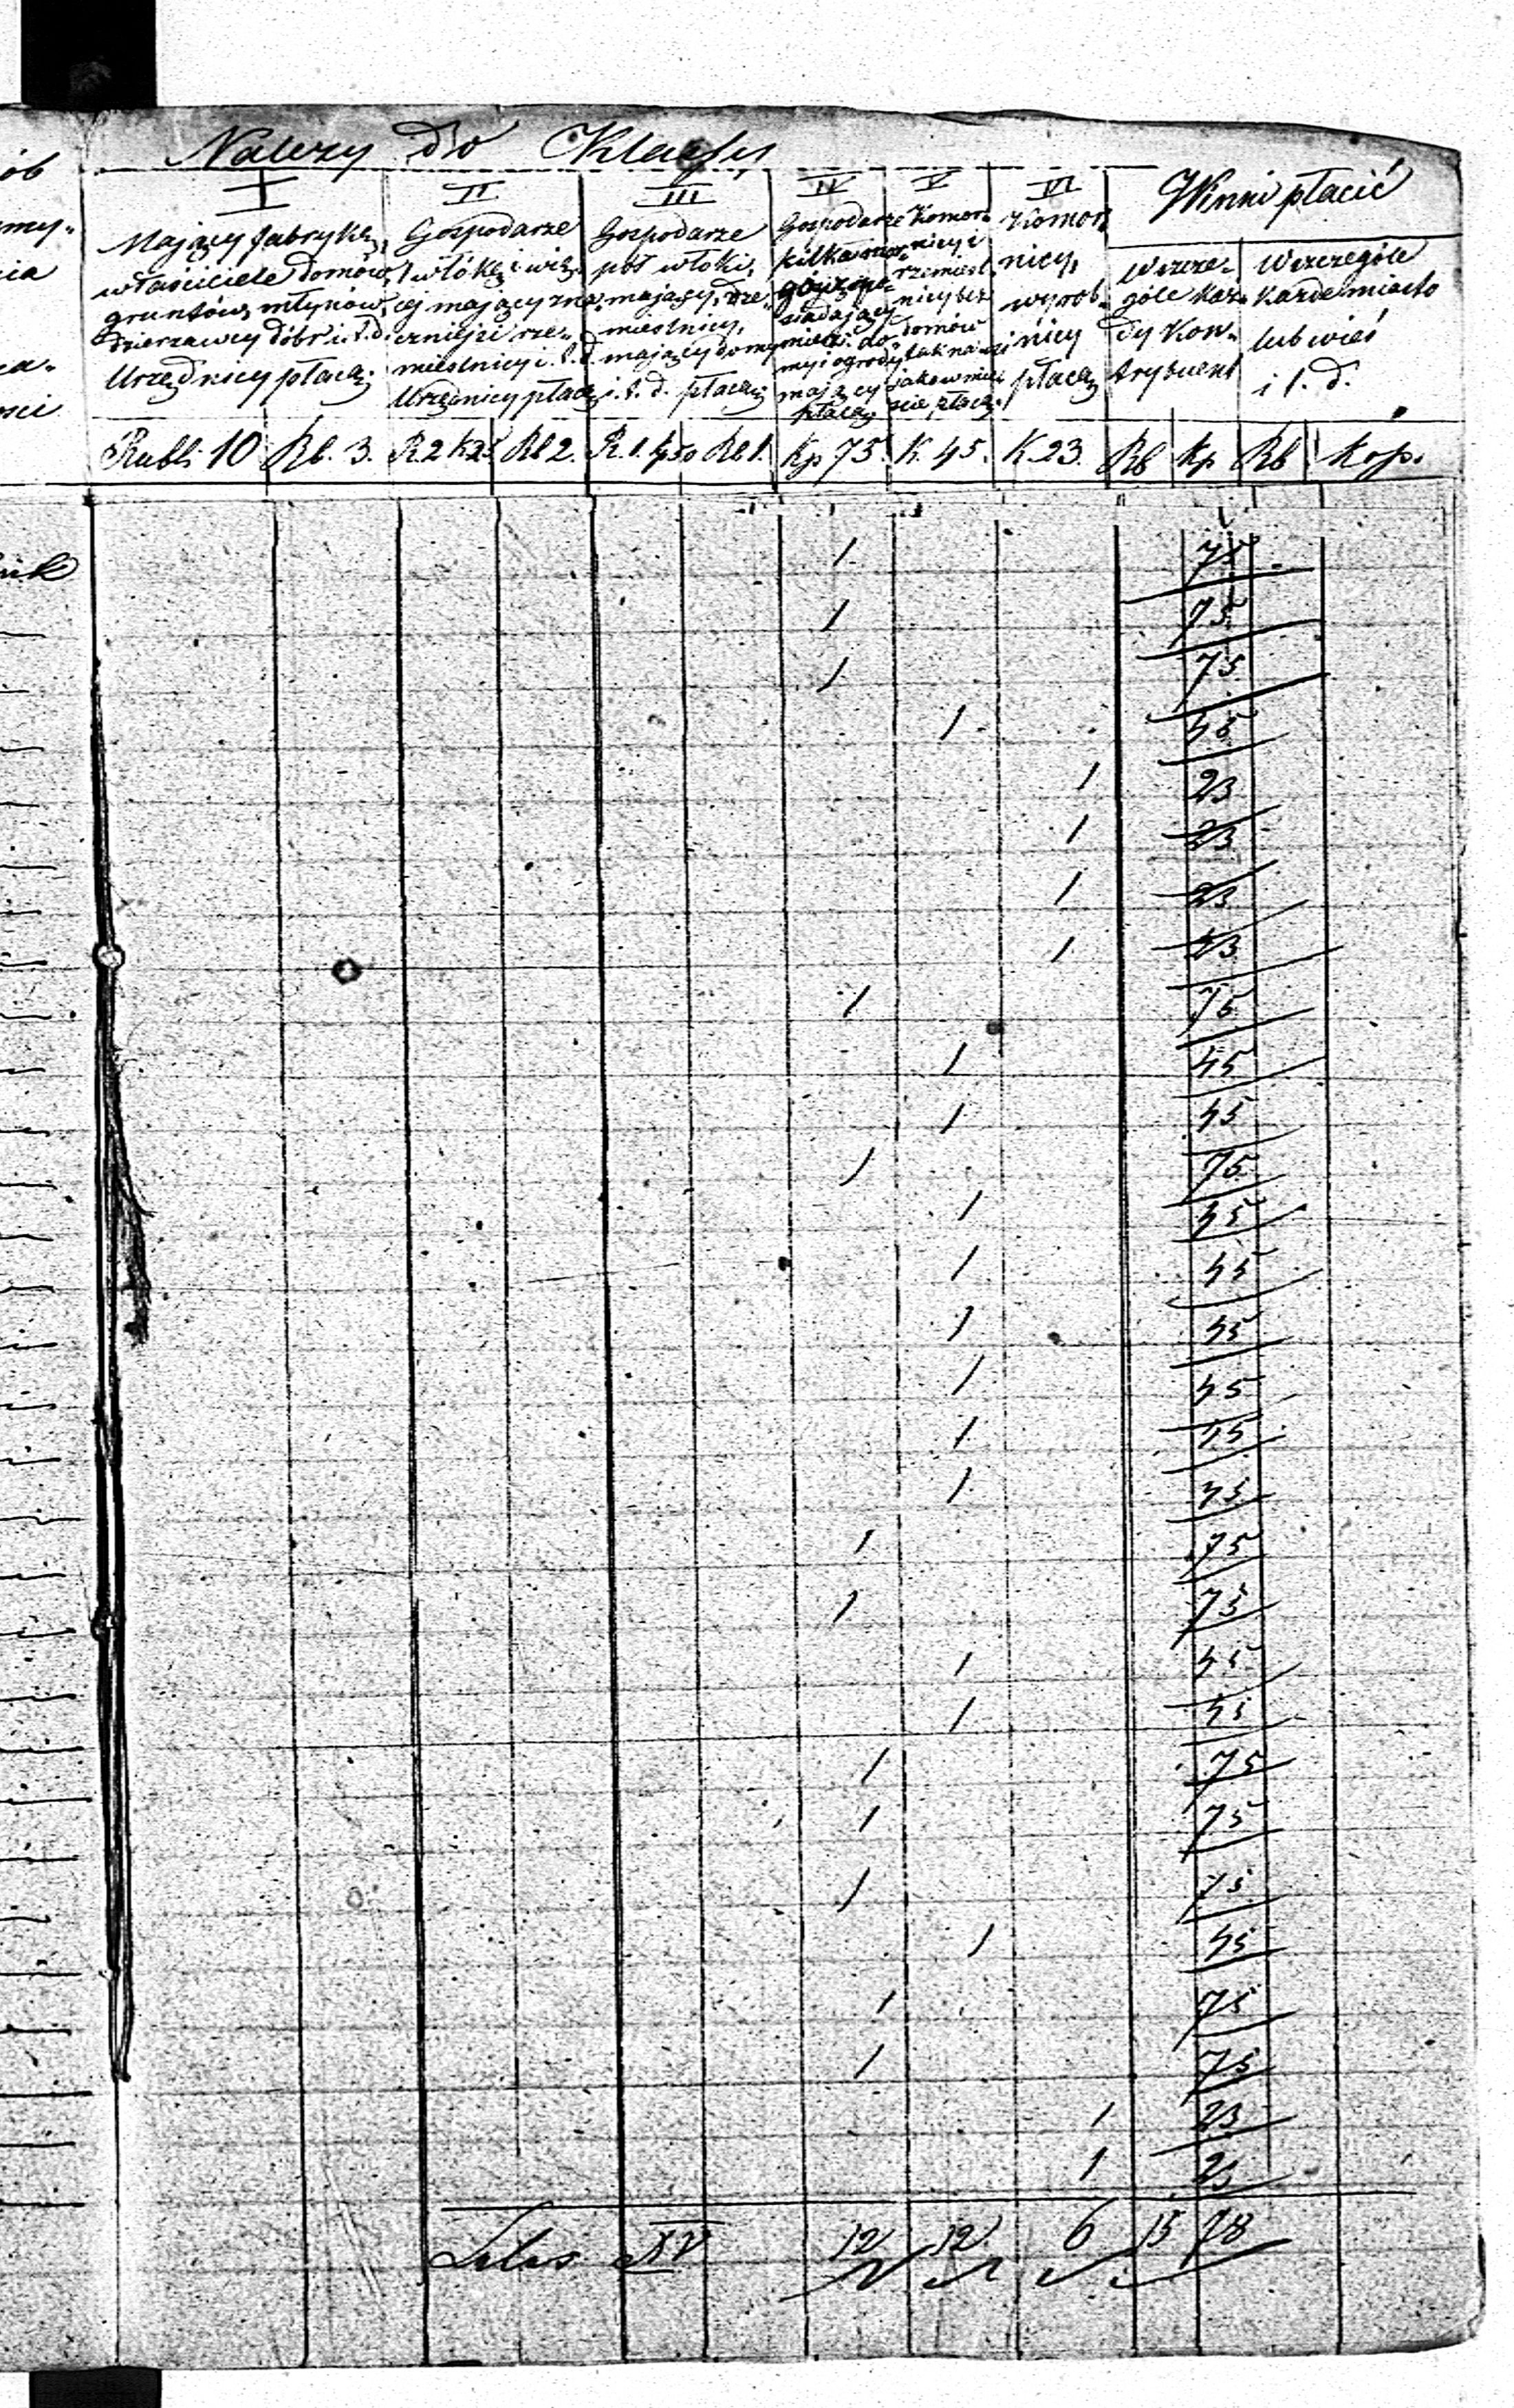 Należy do Klassy
I II III IV V VI Winni płacić
Mający fabrykę,
właściciele domów,
gruntów, młynów,
dzierżawcy dóbr i. t. d.
Urzędnicy płacą
Gospodarze
1 włókę i więc-
ej mający zna-
czniejsi rze-
mieślnicy i. t. d.
Urzędnicy płacą
Gospodarze
pół włóki,
mający, rze-
mieślnicy,
mający domy
i. t. d. płacą
Gospodarze
kilkamor-
gowi po-
siadający
do-
my i ogrody
mający
płacą
Komor-
nicy i
rzemieśl-
nicy bez
domów
płacą
Komor-
nicy,
wyrob-
nicy
płacą
Wszcze-
góle każ-
dy kon-
trybuent
Wszczególe
każde miasto
lub wieś
i t. d.
Rubli 10 Rb. 3. R. 2 K 25 Rb 2. R. 1. k 50 Rb 1. Kp 75. K. 45. K. 23. Rb Kp Rb Kop.
1. 75
1 75
1 75
1. 45
1 23
1 23
1 23
1 23
1 75
1 45
1 45
1 75
1 45
1 45
1 45
1 45
1 45
1 45
1 75
1 75
1 45
1 45
1 75
1 75
1 75
1 45
1 75
1 75
1 23
1 23
Latus XV 12 12 6 15 78